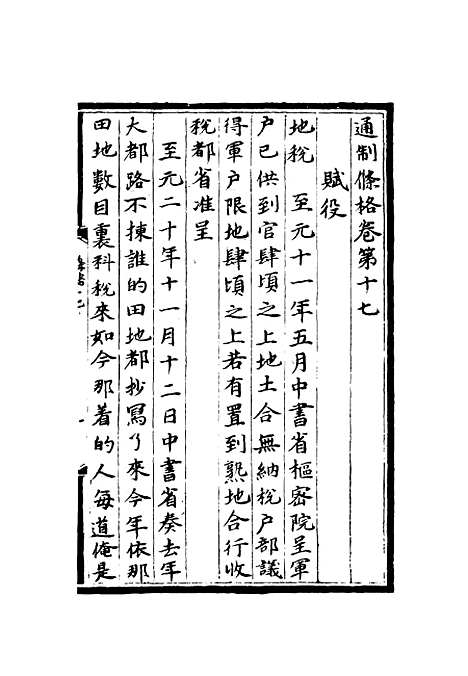 通制條格卷第十七
賦役
地稅 至元十一年五月中書省樞密院呈軍
户已供到官肆頃之上地土合無納稅户部議
得軍户限地肆頃之上若有置到熟地合行收
稅都省准呈
至元二十年十一月十二日中書省奏去年
大都路不揀誰的田地都抄寫了來今年依那
田地數目裏科稅來如今那着的人每道俺是